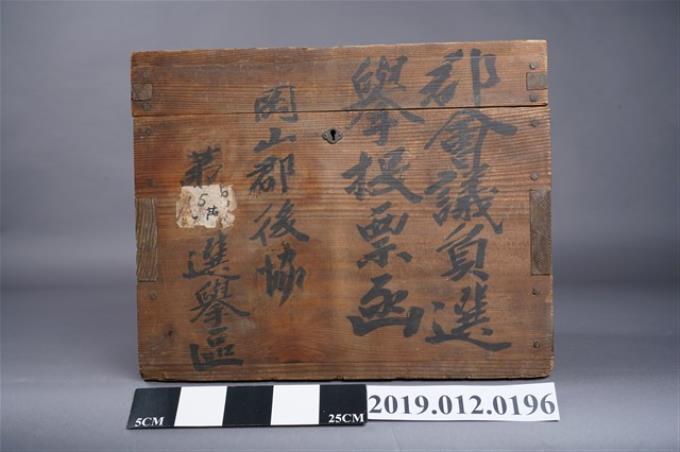 郡會議員選
舉投票函
岡山郡後協
第
選舉區
5
5CM
25CM
2019.012.0196